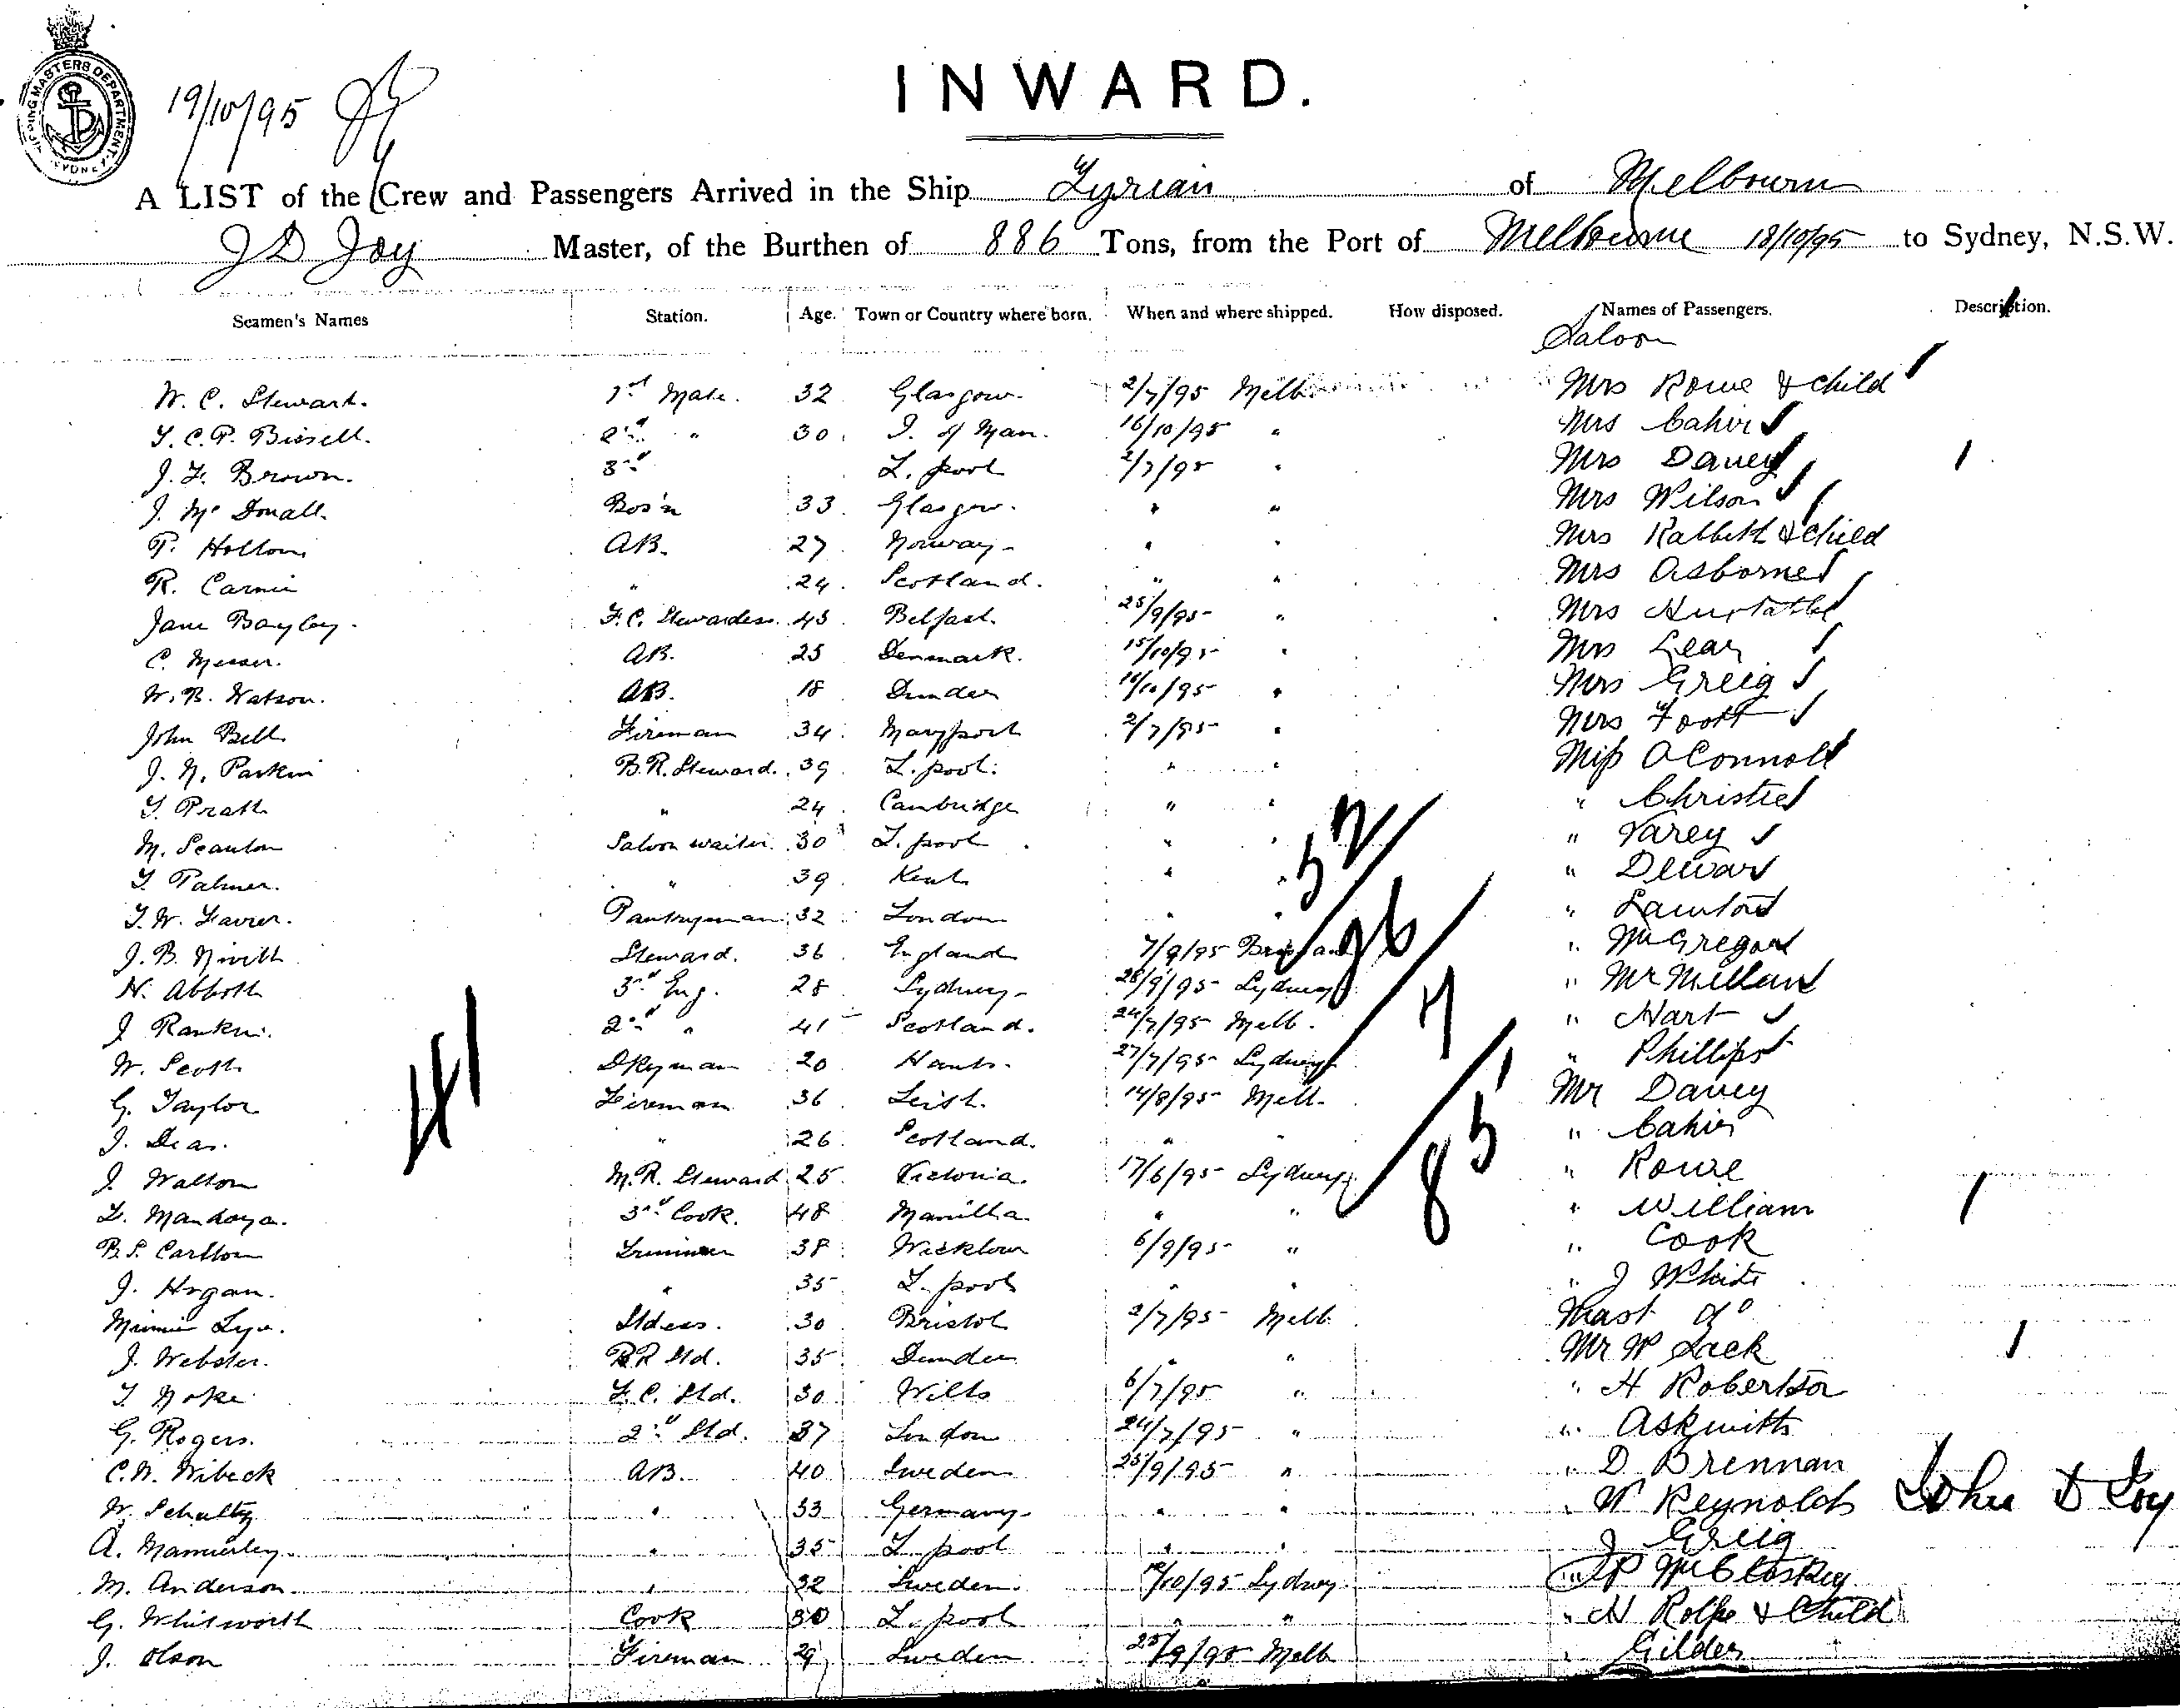 SHIPPING MASTERS DEPARTMENT SYDNEY
19/10/95
INWARD.
A LIST of the Crew and Passengers Arrived in the Ship Tyrian of Melbourne
J D Joy Master, of the Burthen of 886 Tons, from the Port of Melbourne 18/10/95 to Sydney, N.S.W.
Seamen's Names Station. Age. Town or Country where born. When and where shipped. How disposed. Names of Passengers. Description.
Saloon
W. C. Steward. 1st Mate. 32 Glasgow. 2/7/95 Melb. Mrs Rowe & child
T. C. P. Bissell. 2nd " 30. I. of Man. 16/10/95 " Mrs Cahir
J. F. Brown. 3rd L. pool 2/7/95 " Mrs Davey
J. Mc Donall. Bos'n 33. Glasgow. " " Mrs Wilson
P. AB. 27 Norway " " Mrs Rabbith & Child
R. Carnie " 24. Scotland. " " Mrs Asborne
Jane Bayley. F.C. Stewardess. 43. Belfast. 25/9/95 " Mrs
C. AB. 25 Denmark. 15/10/95 " Mrs Lear
W. B. Watson. AB. 18 Dundee 16/10/95 " Mrs Greig
John Bell Fireman 34 Maryport 2/7/95 " Mrs Foott
J. N. Parkin B.R. Steward. 39 L. pool. " " Miss OConnoll
T. Pratt " 24. Cambridge " " " Christie
M. Scanlon Saloon waiter. 30 L. pool. " " " Varey
T. Palmer. " 39. Kent " " " Dewar
T. W. Pantryman 32 London " " "
J. B. Steward. 36 England 7/9/95 " McGregor
N. Abbott 3rd Eng. 28 Sydney 28/9/95 Sydney " McMillan
J Rankin. 2nd " 41 Scotland. 24/7/95 Melb. " Hart
W. Scott Dkyman 20 Hants. 27/7/95 Sydney " Phillips
G. Taylor Fireman 36 Leith. 14/8/95 Melb. Mr Davey
J. Dias. " 26. Scotland. " " " Cahir
J. Walton M.R. Steward 25. Victoria. 17/6/95 Sydney " Rowe
3rd Cook. 48 Manilla " " " William
B. S. Carlton Trimmer 38 Wicklow 6/9/95 " " Cook
J. Hogan. " 35 L. pool " " " J White
Minnie Lye. Stdess. 30 Bristol 2/7/95 Melb. Mast do
J. Webster. BR Std. 35 Dundee " " Mr W Lack
T Noke F.C. Std. 30 Wilts 6/7/95 " " H Robertson
G. Rogers. 2nd Std. 37 London 24/7/95 " " Askwith
C. W. Wibeck AB. 40 Sweden 25/9/95 " " D Brennan
W. Schultz " 33 Germany " " " W Reynolds John D Joy
A. " 35 L. pool " " J Greig
M. Anderson. " 32 Sweden. /10/95 Sydney " P McCloskey
G. Whitworth Cook 30 L. pool " " " H Rolfe & Child
J. Olson Fireman 29 Sweden 25/9/95 Melb " Gilder
41
52
26
7
85